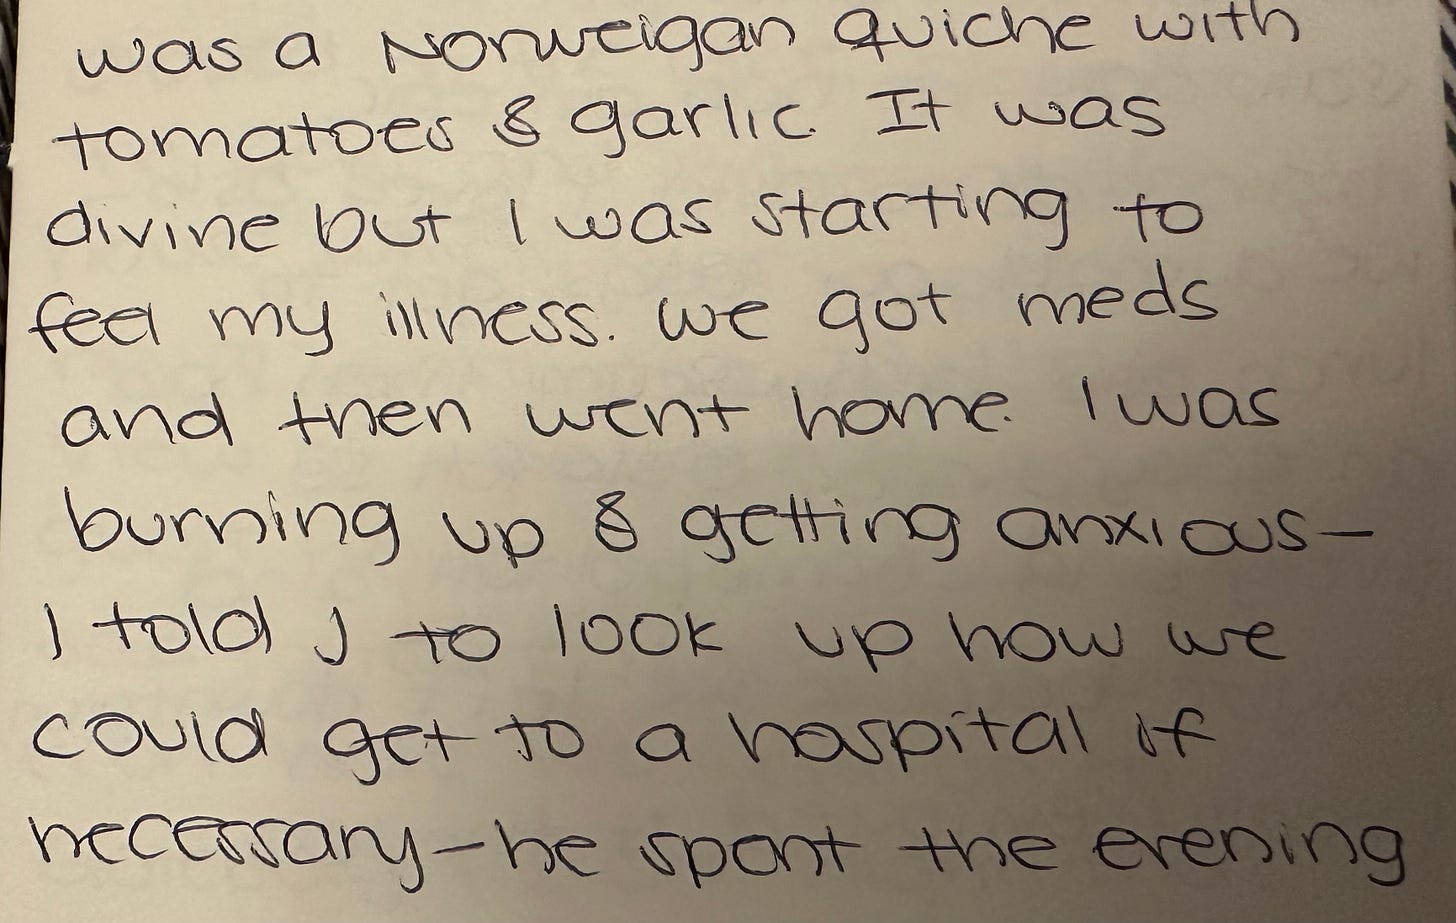 was a Norweigan quiche with
tomatoes & garlic. It was
divine but I was starting to
feel my illness. we got meds
and then went home. I was
burning up & getting anxious—
I told J to look up how we
could get to a hospital if
necessary—he spent the evening